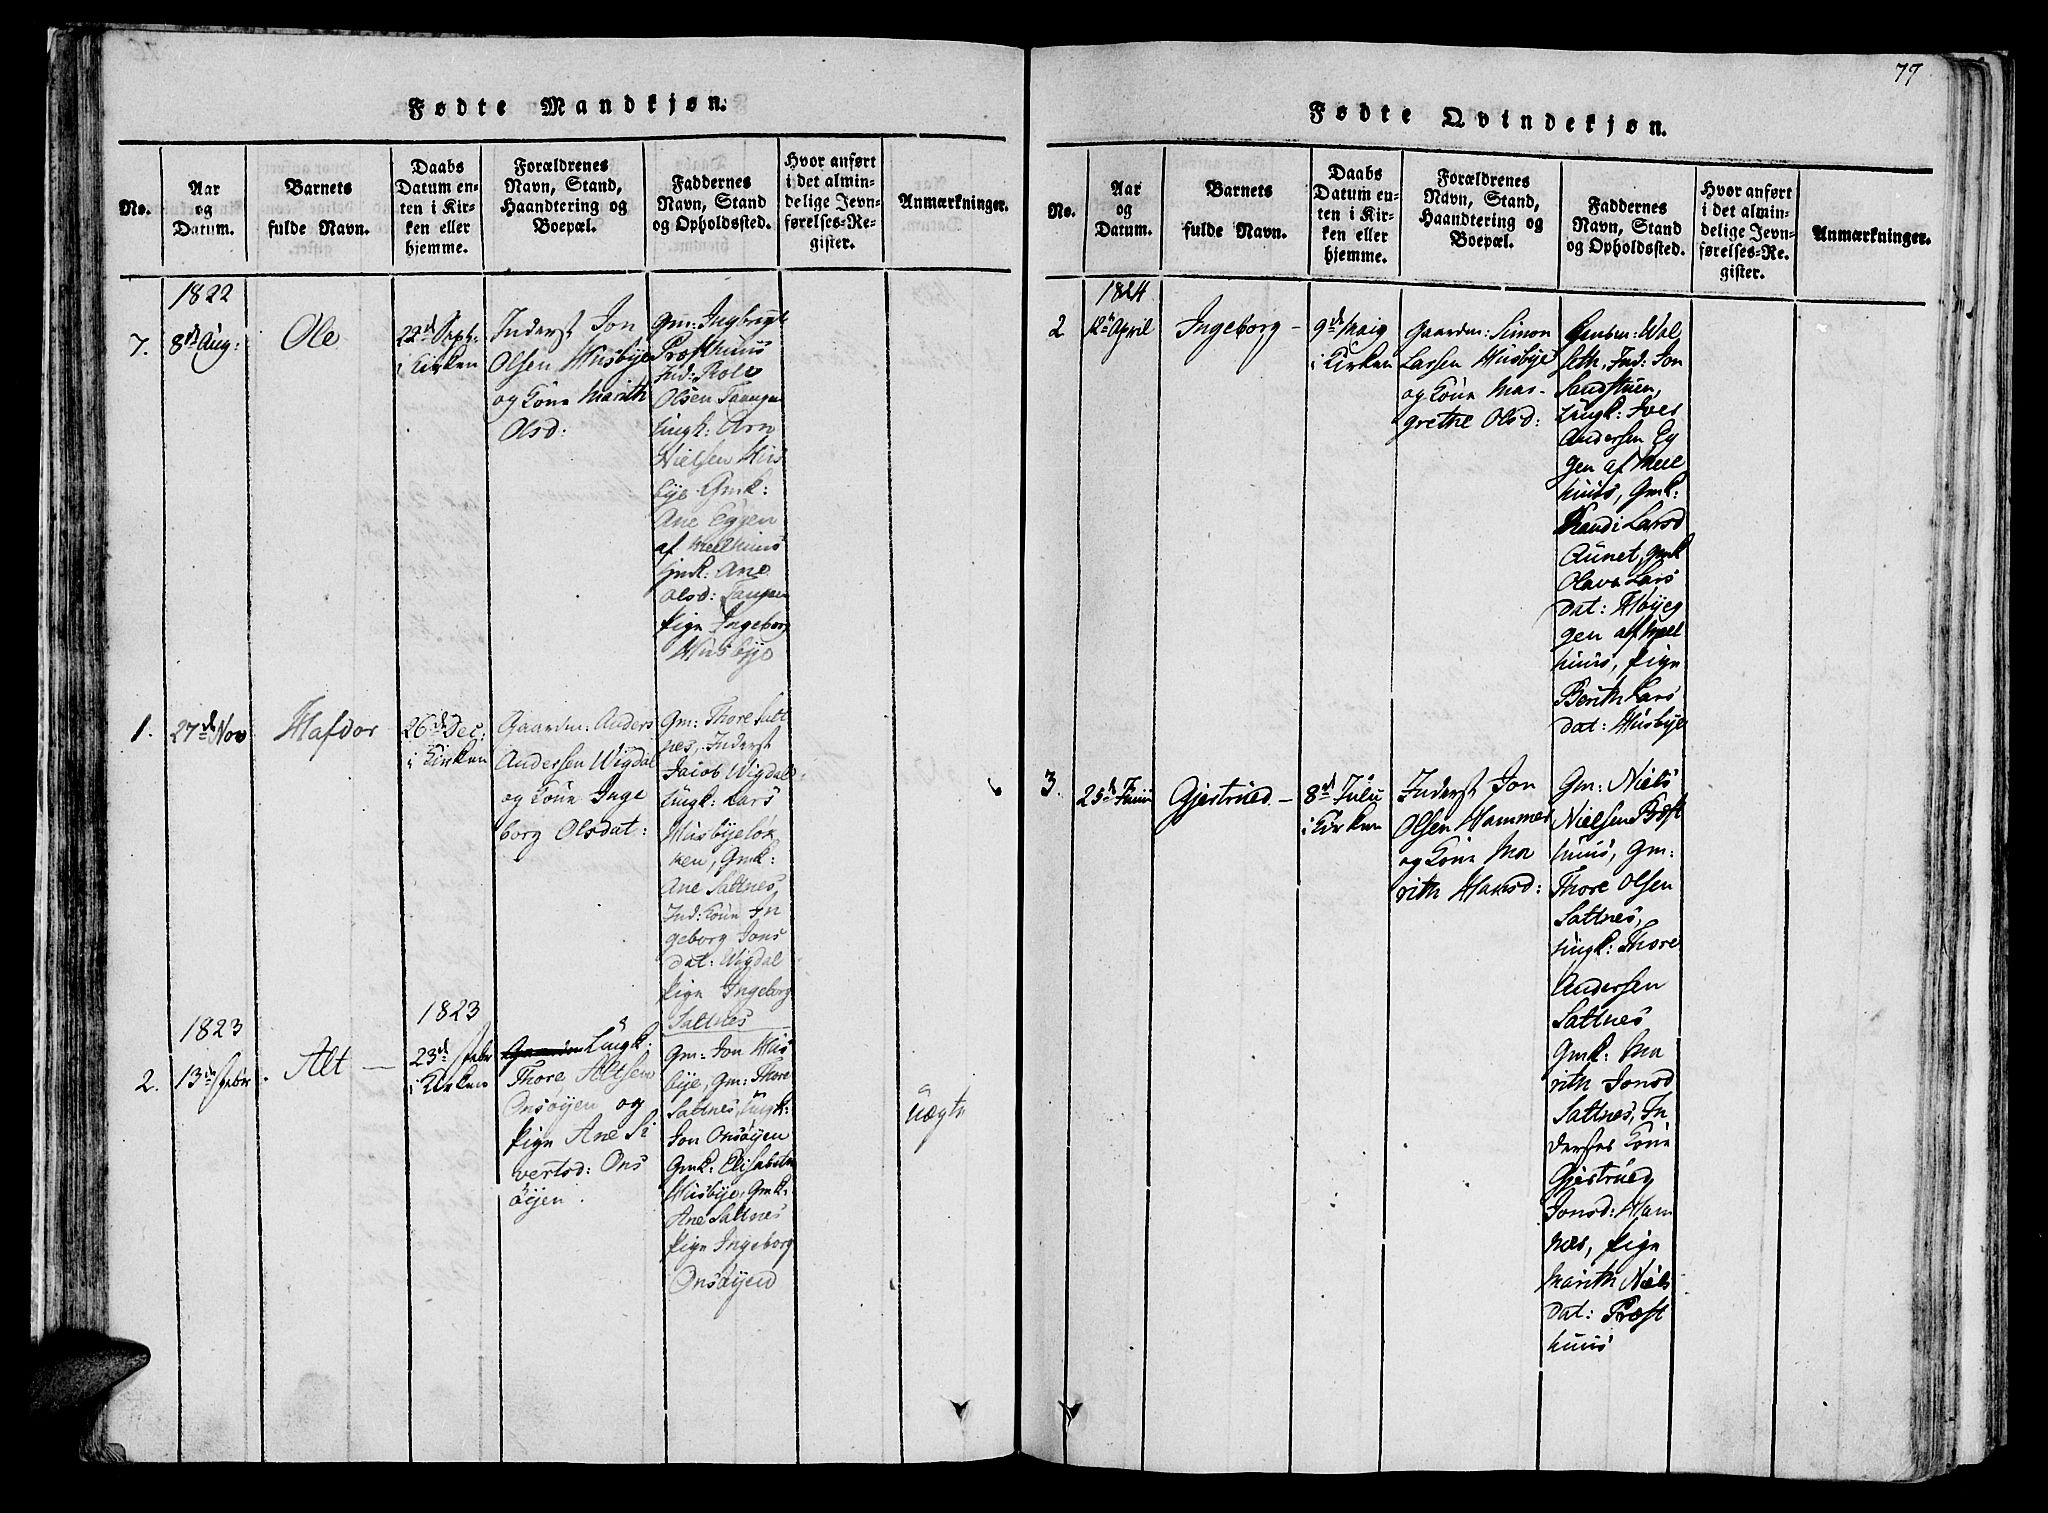 77
Fødte Mandkjøn.
No.
Aar
og
Datum.
Barnets
fulde Navn.
Daabs
Datum en-
ten i Kir-
ken eller
hjemme.
Forældrenes
Navn, Stand,
Haandtering og
Boepæl.
Faddernes
Navn, Stand
og Opholdssted.
Hvor anført
i det almin-
delige Jevn-
førelses-Re-
gister.
Anmærkninger.
1822
7.
8de Aug:
Ole
22de Sept:
i Kirken
Inderst Jon
Olsen Husbye
og Kone Marith
Olsd:
Gm: Ingbrigt
Præsthuus
Ind: Role
Olsen Tangen
Ungk: Arn
Nielsen Hus
bye Gmk:
Ane Eggen
af Meelhuus
Gmk: Ane
Olsd: Tangen
Pige Ingeborg
Husbye
1.
27de Nov
Hafdor
26de Dec:
i Kirken
Gaardm: Anders
Andersen Wigdal
og Kone Inge
borg Olsdat:
Gm: Thore Salt
nes, Inderst
Jacob Wigdal
Ungk: Lars
Husbyeløk
ken, Gmk:
Ane Saltnes,
Ind: Kone In
geborg Jons
dat: Wigdal
Pige Ingeborg
Saltnes
1823
2.
13de Febr.
Alt
1823
23de Febr
i Kirken
Ungk:
Thore Altsen
Onsøyen og
Pige Ane Si
vertsd: Ons
øyen.
Gm: Jon Hus
bye, Gm: Thore
Saltnes, Ungk:
Jon Onsøyen
Gmk: Elisabeth
Husbye, Gmk:
Ane Saltnes
Pige Ingeborg
Onsøyen
Uægte
Fødte Qvindekjøn.
No.
Aar
og
Datum.
Barnets
fulde Navn.
Daabs
Datum en-
ten i Kir-
ken eller
hjemme.
Forældrenes
Navn, Stand,
Haandtering og
Boepæl.
Faddernes
Navn, Stand
og Opholdssted.
Hvor anført
i det almin-
delige Jevn-
førelses-Re-
gister.
Anmærkninger.
1824
2
12te April
Ingeborg
9de Maig
i Kirken
Gaardm: Simon
Larsen Husbye
og Kone Mar-
grethe Olsd:
Wal
seth, Ind: Jon
Sandstuen,
Ungk: Iver
Andersen Eg
gen af Meel
huus, Gmk:
Randi Larsd
Aunet, Gmk
Olava Lars
dat: Høyeg
gen af Meel
huus, Pige
Berith Lars
dat: Husbye
3.
25de Junii
Gjertrued
8de Julii
i Kirken
Inderst Jon
Olsen Hammer
og Kone Ma
rith Hansd:
Gm: Niels
Nielsen Præst
huus, Gm:
Thore Olsen
Saltnes,
Ungk: Thore
Andersen
Saltnes
Gmk: Ma
rith Jonsd
Saltnes, In
derstes Kone
Gjertrued
Jonsd: Ham
mer, Pige
Marith Niels
dat: Præst
huus